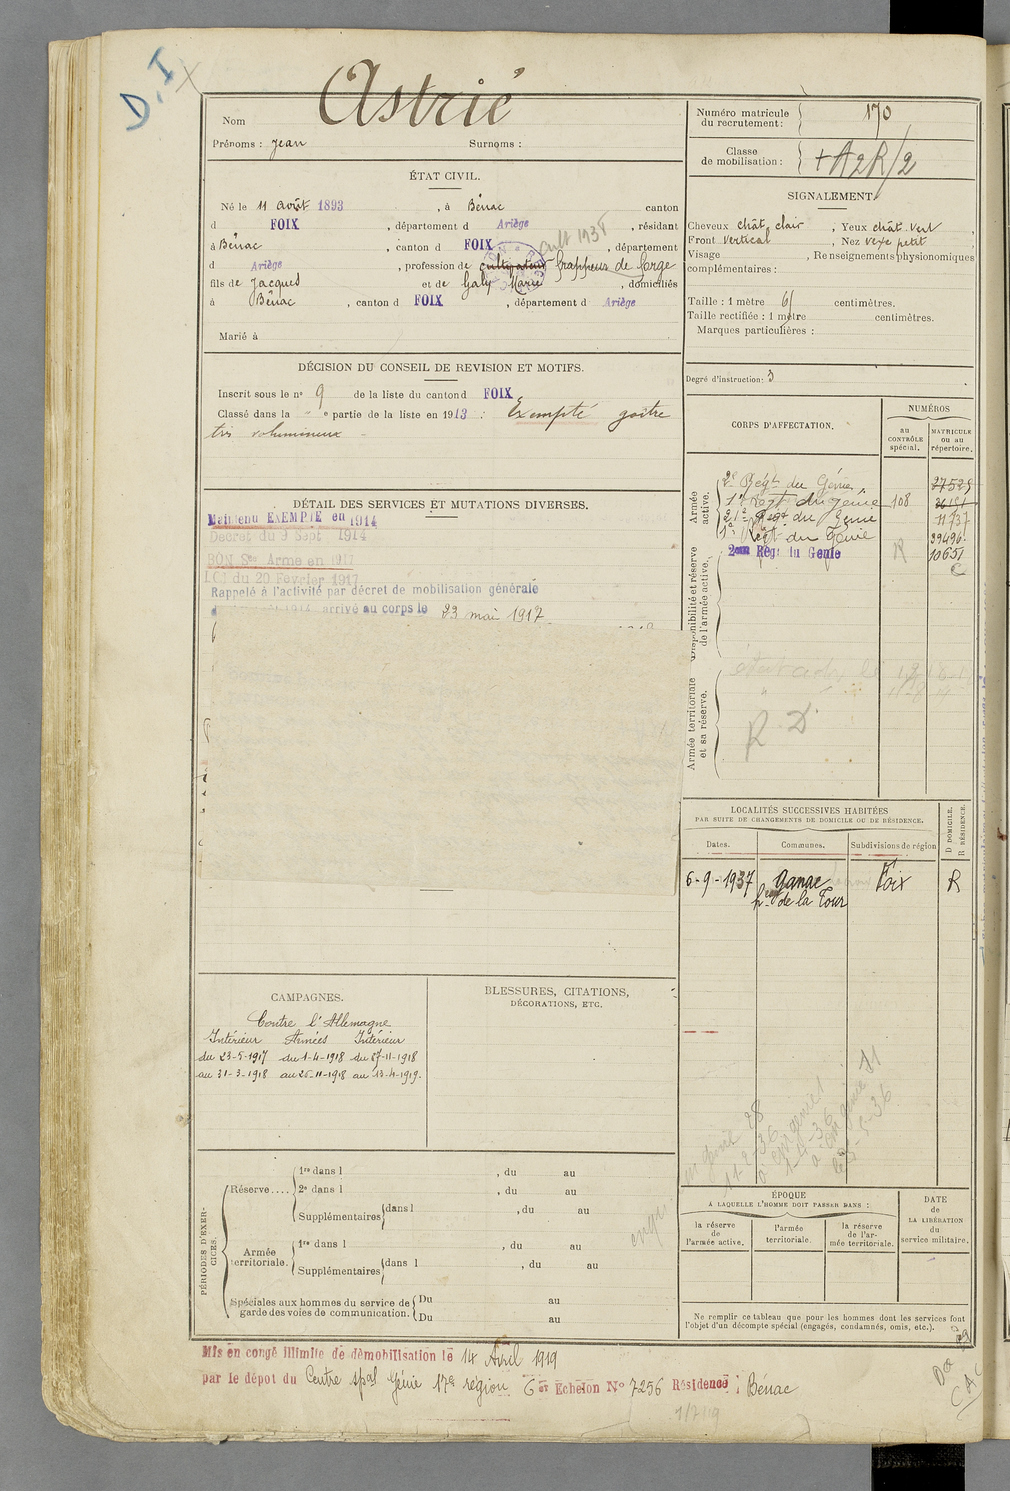 D. I
Astrié
Nom
Prénoms : Jean Surnoms :
Numéro matricule du recrutement : 170
Classe de mobilisation : + A2R/2
ÉTAT CIVIL.
Né le 11 août 1893, à Bénac canton
d FOIX, département d Ariège, résidant
à Bénac, canton d FOIX, département
cult 1935
d Ariège, profession de cultivateur frappeur de forge
fils de Jacques et de Galy Marie, domiciliés
à Bénac, canton d FOIX, département d Ariège
Marié à
SIGNALEMENT
Cheveux chât. clair, Yeux chât. vert,
Front vertical, Nez vexe petit
Visage , Renseignements physionomiques
complémentaires :
Taille : 1 mètre 61 centimètres.
Taille rectifiée : 1 mètre centimètres.
Marques particulières :
Degré d'instruction : 3
DÉCISION DU CONSEIL DE REVISION ET MOTIFS.
Inscrit sous le n° 9 de la liste du canton d FOIX
Classé dans la " e partie de la liste en 1913 : Exempté goitre
très volumineux
CORPS D'AFFECTATION.
NUMÉROS
au CONTRÔLE spécial.
MATRICULE ou au répertoire.
Armée active.
2e Régt du Génie 27529
1er Régt du génie 108
21e Régt du Génie 11737
1er Régt du Génie 39496
2eme Régt du Genie R 10651
C
Disponibilité et réserve de l'armée active.
Armée territoriale et sa réserve.
R. D.
DÉTAIL DES SERVICES ET MUTATIONS DIVERSES.
Maintenu EXEMPTÉ en 1914
Décret du 9 Sept 1914
BON Sce Armé en 1917
LOI du 20 Février 1917
Rappelé à l'activité par décret de mobilisation générale
arrivé au corps le 23 mai 1917
LOCALITÉS SUCCESSIVES HABITÉES
PAR SUITE DE CHANGEMENTS DE DOMICILE OU DE RÉSIDENCE.
D DOMICILE.
R RÉSIDENCE.
Dates. Communes. Subdivisions de région
6-9-1937 Ganac Foix R
de la Tour
CAMPAGNES.
Contre l'Allemagne
Intérieur Armées Intérieur
du 23-5-1917 du 1-4-1918 du 27-11-1918
au 31-3-1918 au 26-11-1918 au 13-4-1919.
BLESSURES, CITATIONS,
DÉCORATIONS, ETC.
PÉRIODES D'EXERCICES.
Réserve....
1re dans l , du au
2e dans l , du au
Supplémentaires dans l , du au
Armée territoriale.
1re dans l , du au
Supplémentaires dans l , du au
Spéciales aux hommes du service de garde des voies de communication.
Du au
Du au
ÉPOQUE
À LAQUELLE L'HOMME DOIT PASSER DANS :
la réserve de l'armée active.
l'armée territoriale.
la réserve de l'armée territoriale.
DATE de LA LIBÉRATION du service militaire.
Ne remplir ce tableau que pour les hommes dont les services font
l'objet d'un décompte spécial (engagés, condamnés, omis, etc.).
Mis en congé illimité de démobilisation le 14 Avril 1919
par le dépot du Centre spal Génie 17e région 6 er Echelon N° 7256 Résidence : Bénac